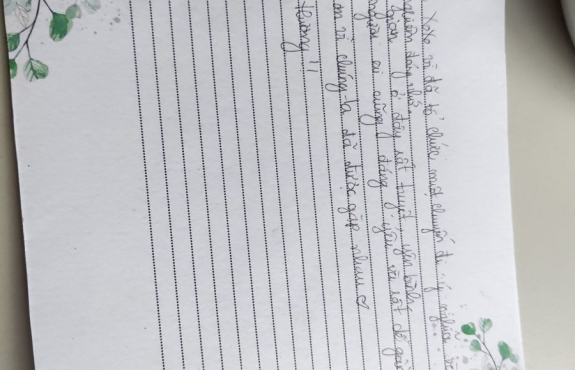 Xoxo vì đã tổ chức một chuyến đi ý nghĩa
đáng nhớ.
gian ở đây rất tuyệt, yên bình
người ai cũng đáng yêu và rất dễ gần
ơn vì chúng ta đã được gặp nhau ♡
thương !!